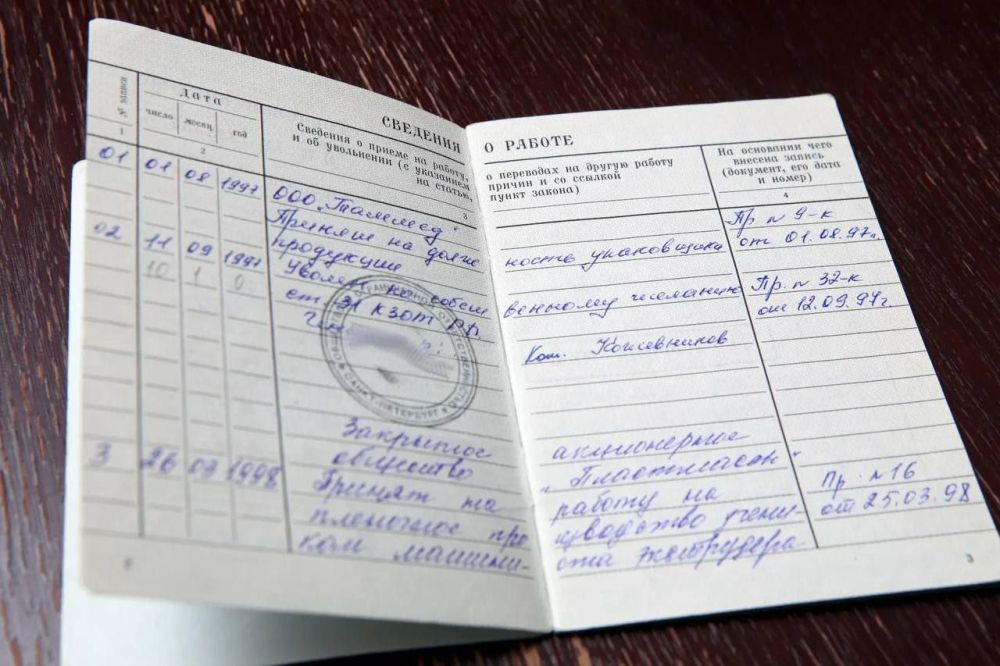 СВЕДЕНИЯ О РАБОТЕ
№ записи
Дата
число месяц год
Сведения о приеме на работу,
и об увольнении (с указанием
на статью,
о переводах на другую работу
причин и со ссылкой
пункт закона)
На основании чего
внесена запись
(документ, его дата
и номер)
1 2 3 4
01 01 08 1997 ООО „Таммед“
Принят на долж ность упаковщика Пр n 9-к
продукции от 01.08.97г.
02 11 09 1997 Уволен по собст венному желанию Пр. n 32-к
10 1 0 ст. 31 КЗОТ РФ. от 12.09.97г.
Кожевников
САНКТ-ПЕТЕРБУРГ
Закрытое акционерное
общество „Пластмассы“
3 26 03 1998 Принят на работу на Пр. n 16
пленочное про изводство учени- от 25.03.98
ком машини- ста экструдера
3